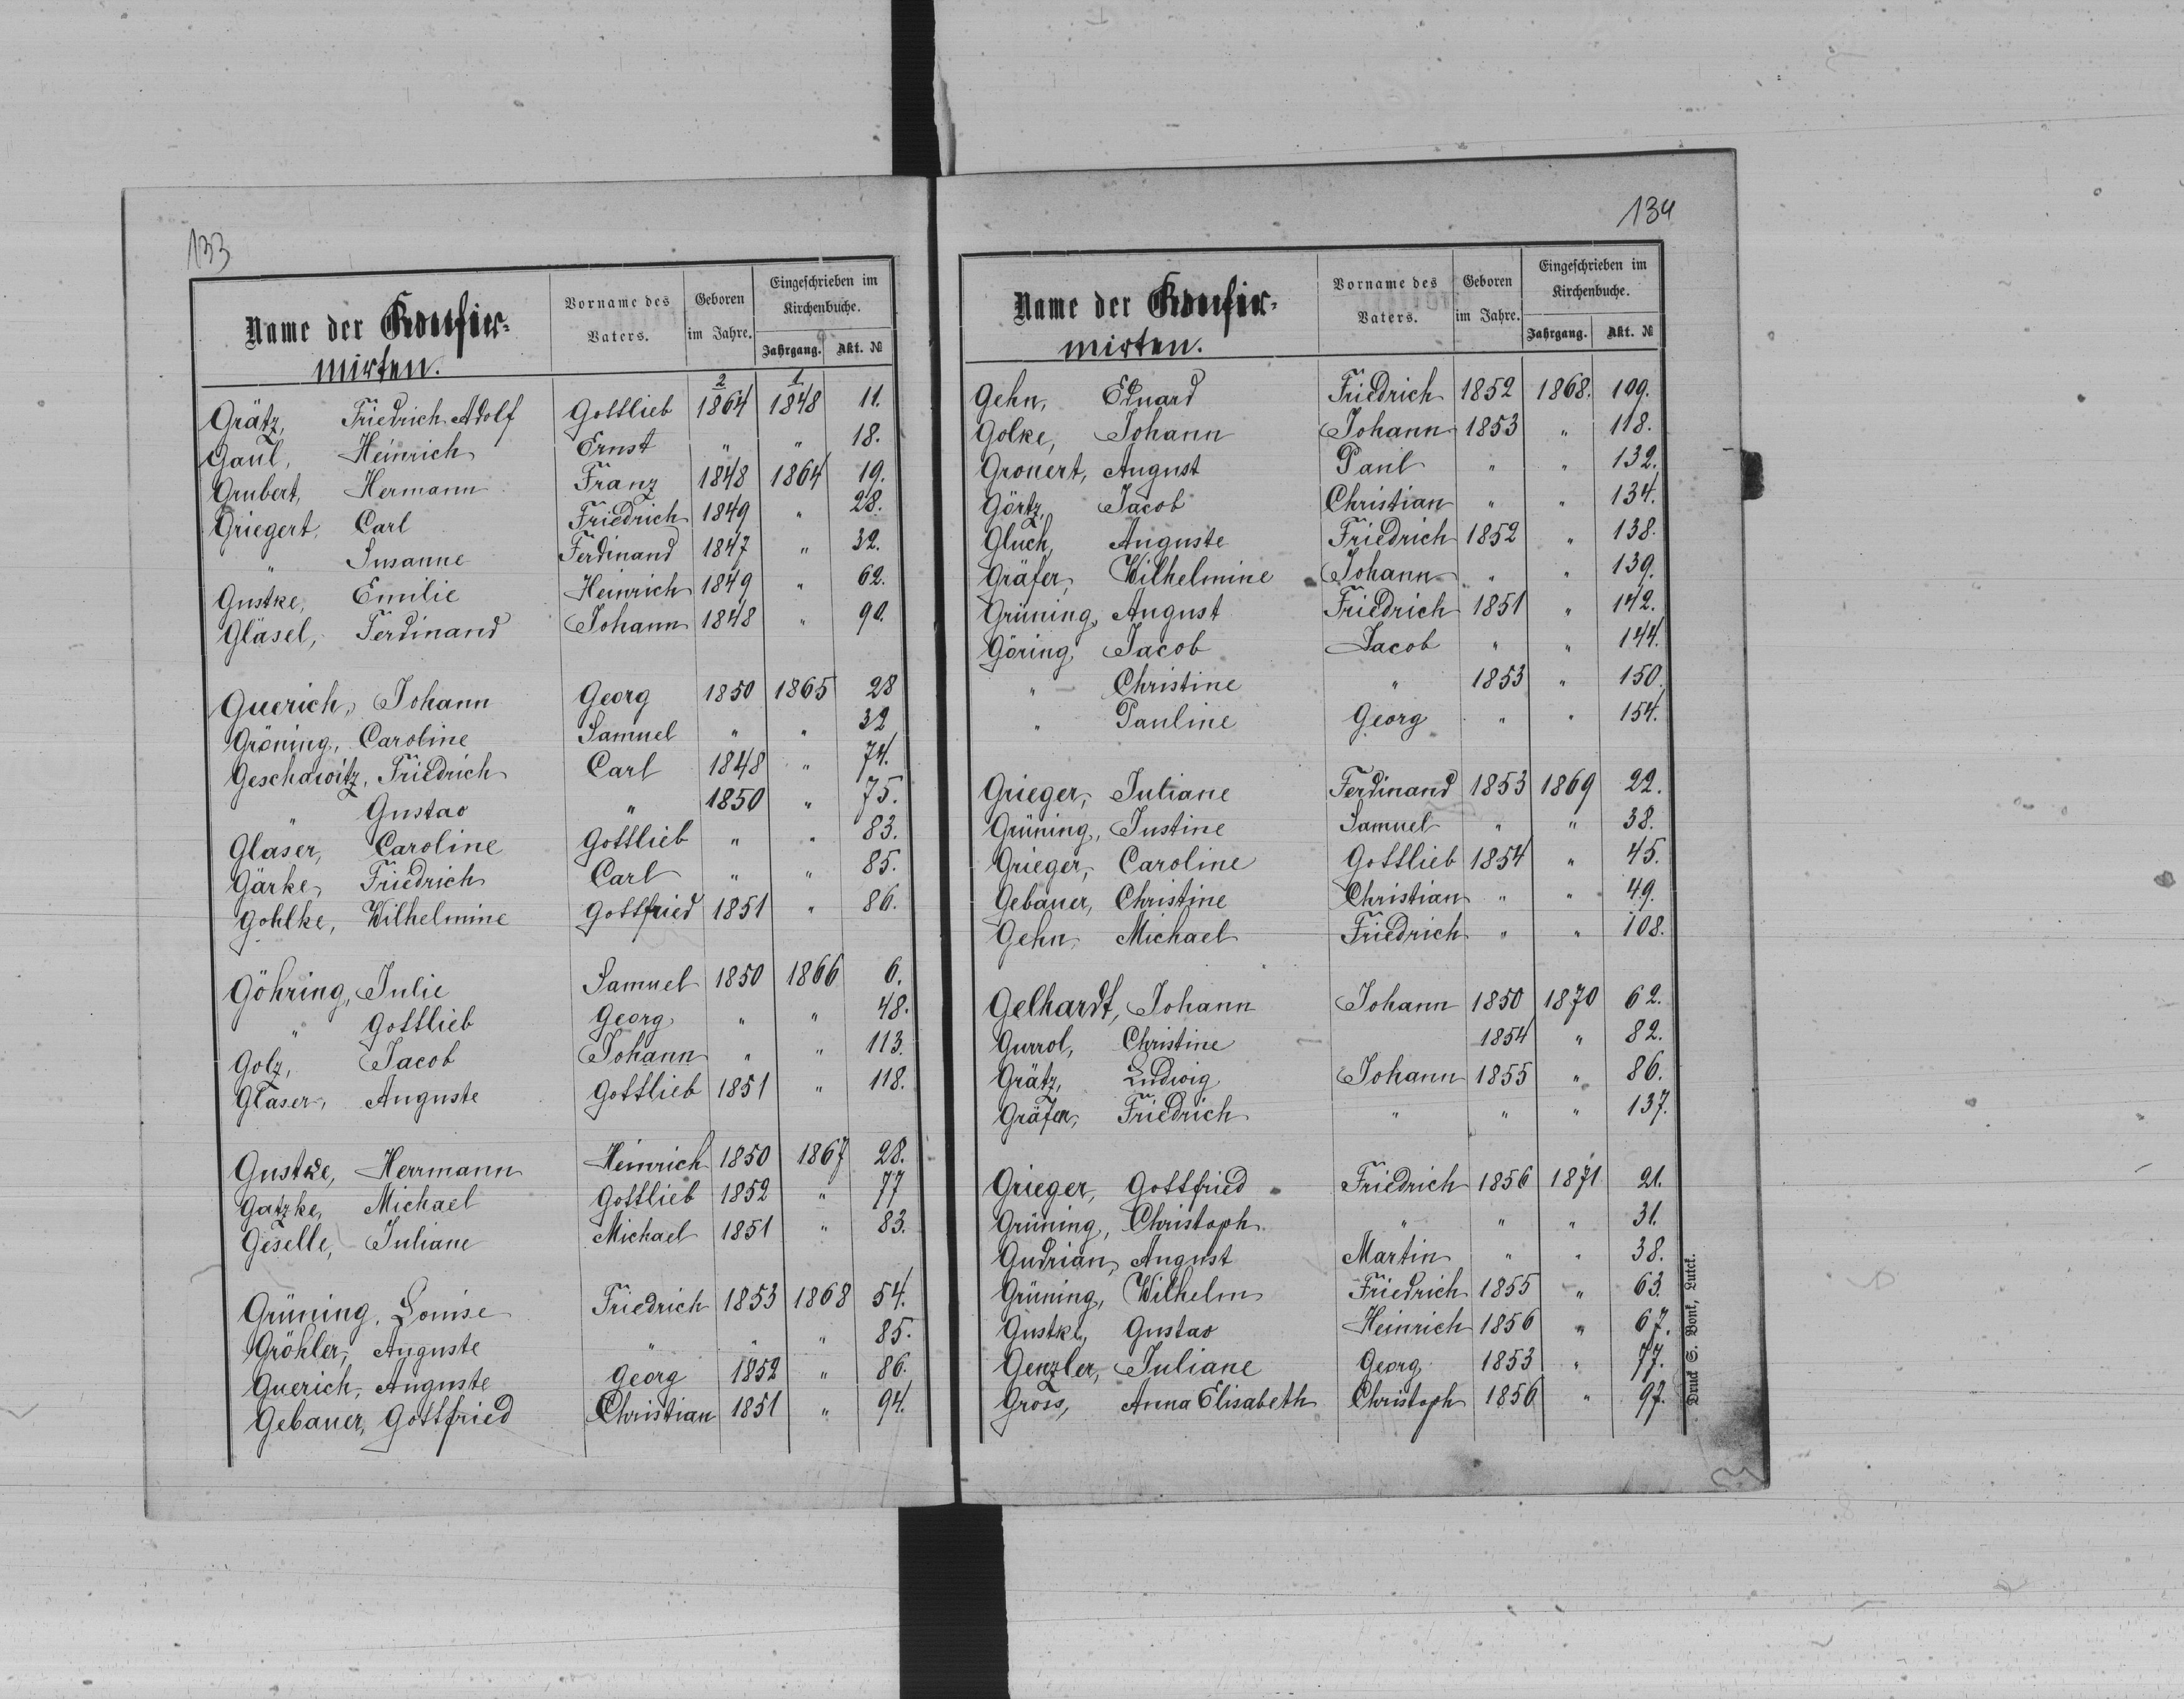 133
Name der Konfir-
mirten.
Vorname des
Vaters.
Geboren
im Jahre.
Eingeschrieben im
Kirchenbuche.
Jahrgang. Akt. №
2 1
Grätz, Friedrich Adolf Gottlieb 1864 1848 11.
Gaul, Heinrich Ernst " " 18.
Grubert, Hermann Franz 1848 1864 19.
Griegert, Carl Friedrich 1849 " 28.
" Susanne Ferdinand 1847 " 32.
Gustke, Emilie Heinrich 1849 " 62.
Gläsel, Ferdinand Johann 1848 " 90.
Guerich, Johann Georg 1850 1865 28
Gröning, Caroline Samuel " " 32
Geschawitz, Friedrich Carl 1848 " 74.
" Gustav " 1850 " 75.
Glaser, Caroline Gottlieb " " 83.
Gärke, Friedrich Carl " " 85.
Gohlke, Wilhelmine Gottfried 1851 " 86.
Göhring, Julie Samuel 1850 1866 6.
" Gottlieb Georg " " 48.
Golz, Jacob Johann " " 113.
Glaser, Auguste Gottlieb 1851 " 118.
Gustke, Herrmann Heinrich 1850 1867 28.
Gatzke, Michael Gottlieb 1852 " 77
Geselle, Juliane Michael 1851 " 83.
Grüning, Louise Friedrich 1853 1868 54.
Gröhler, Auguste " " " 85.
Guerich, Auguste Georg 1852 " 86.
Gebauer, Gottfried Christian 1851 " 94.
134
Name der Konfir-
mirten.
Vorname des
Vaters.
Geboren
im Jahre.
Eingeschrieben im
Kirchenbuche.
Jahrgang. Akt. №
Gehn, Eduard Friedrich 1852 1868. 109.
Golke, Johann Johann 1853 " 118.
Gronert, August Paul " " 132.
Görtz, Jacob Christian " " 134.
Gluch, Auguste Friedrich 1852 " 138.
Gräfer, Wilhelmine Johann " " 139.
Grüning, August Friedrich 1851 " 142.
Göring, Jacob Jacob " " 144.
" Christine " 1853 " 150.
" Pauline Georg " " 154.
Grieger, Juliane Ferdinand 1853 1869 22.
Grüning, Justine Samuel " " 38.
Grieger, Caroline Gottlieb 1854 " 45.
Gebauer, Christine Christian " " 49.
Gehn, Michael Friedrich " " 108.
Gelhardt, Johann Johann 1850 1870 62.
Gurrol, Christine 1854 " 82.
Grätz, Ludwig Johann 1855 " 86.
Gräfer, Friedrich " " " 137.
Grieger, Gottfried Friedrich 1856 1871 21.
Grüning, Christoph " " " 31.
Gudrian, August Martin " " 38.
Grüning, Wilhelm Friedrich 1855 " 63.
Gustke, Gustav Heinrich 1856 " 67.
Genzler, Juliane Georg 1853 " 77.
Gross, Anna Elisabeth Christoph 1856 " 97.
Druck S. Bonk, Lutck.